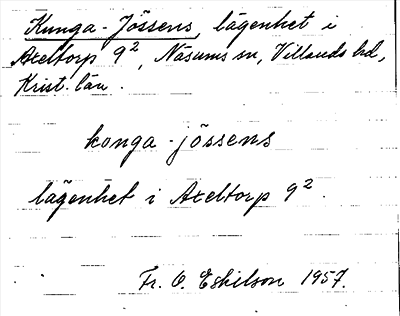 Kunga-Jössens, lägenhet i
Axeltorp 9², Näsums sn, Villands hd,
Krist. län.
konga-jössens
lägenhet i Axeltorp 9².
Fr. O. Eskilson 1957.